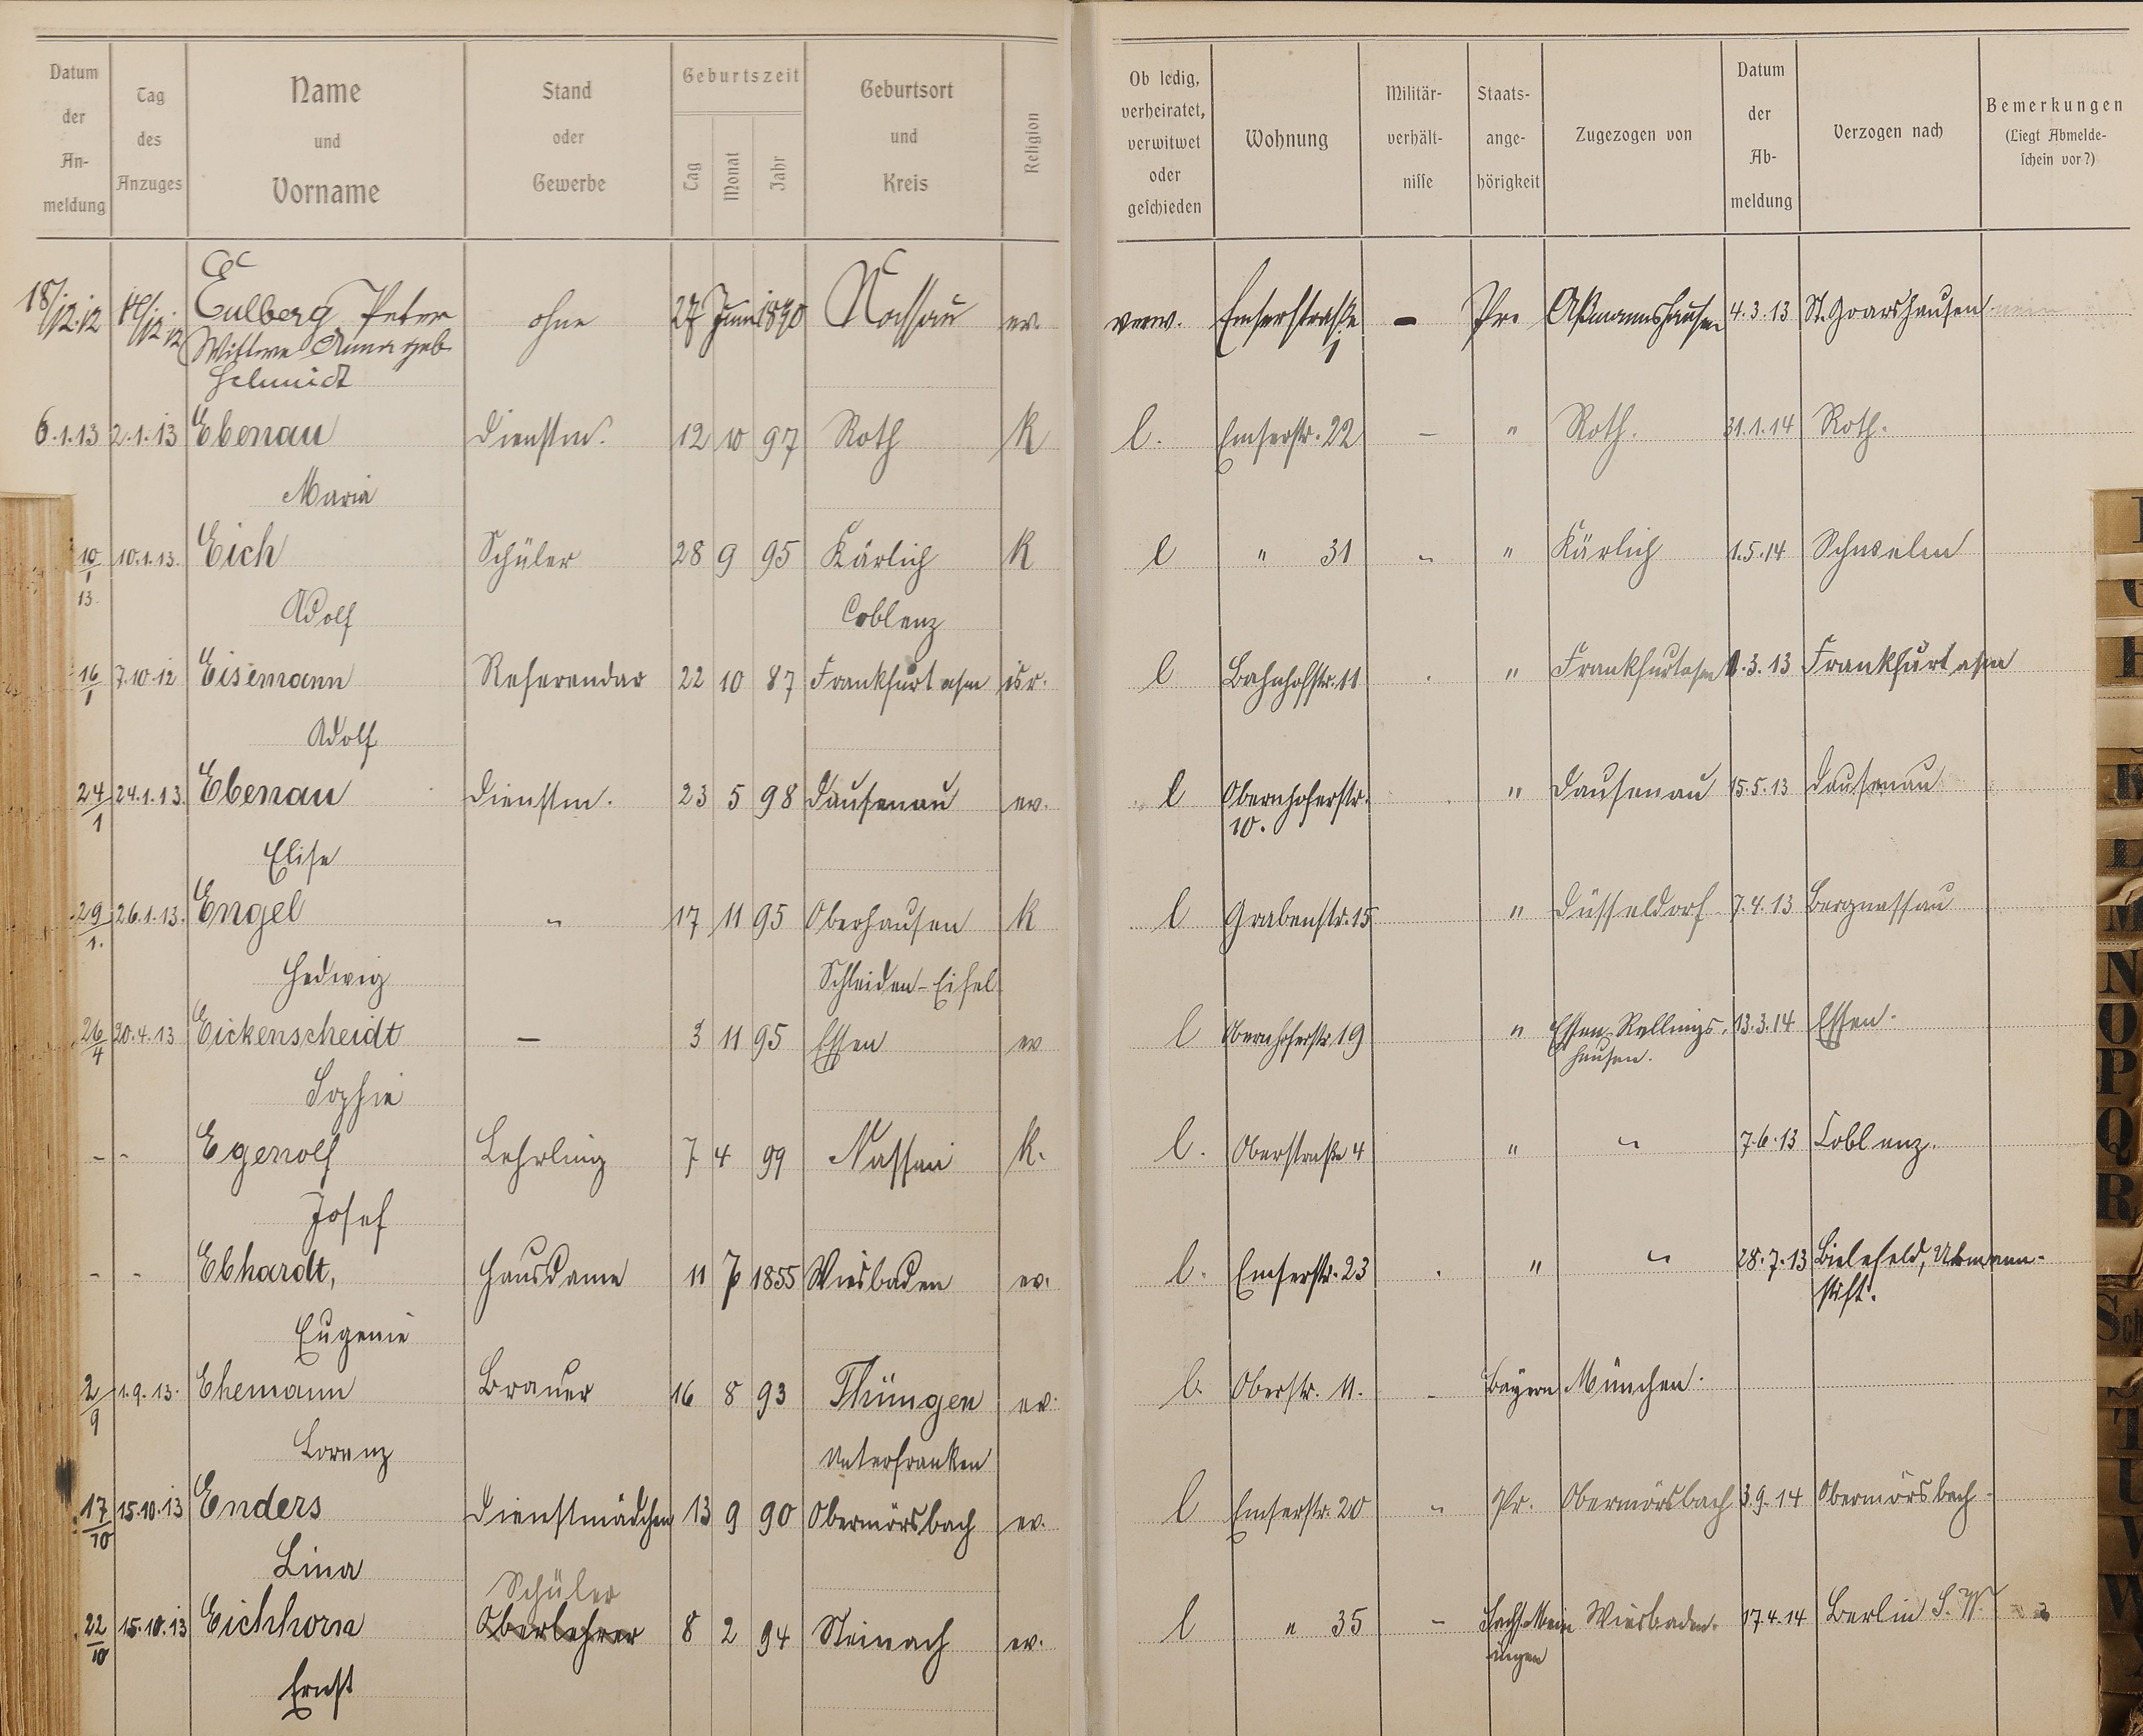 Datum der An- meldung
Tag des Anzuges
Name und Vorname
Stand oder Gewerbe
Geburtszeit
Tag Monat Jahr
Geburtsort und Kreis
Religion
Ob ledig, verheiratet, verwitwet oder geschieden
Wohnung
Militär- verhält- nisse
Staats- ange- hörigkeit
Zugezogen von
Datum der Ab- meldung
Verzogen nach
Bemerkungen
(Liegt Abmelde- schein vor?)
18/12.12 Eulberg Peter ohne 27 Juni 1890 Nassau ev. verw. Emserstraße 1 - Pr. Aßmannshausen 4.3.13 St. Goarshausen
Wittwe Anna geb.
Schmidt
6.1.13 2.1.13 Ebenau Dienstm. 12 10 97 Roth K l. Emserstr. 22 - " Roth. 31.1.14 Roth.
Maria
10/1 13. 10.1.13. Eich Schüler 28 9 95 Kärlich K l " 31 " " Kärlich 1.5.14 Schwelm
Adolf Coblenz
16/1 7.10.12 Eisemann Referendar 22 10 87 Frankfurt a/m isr. l Bahnhofstr. 11 " Frankfurt a/m 1.3.13 Frankfurt a/m
Adolf
24/1 24.1.13. Ebenau Dienstm. 23 5 98 Dausenau ev. l Obernhoferstr. 10. " Dausenau 15.5.13 Dausenau
Elise
29/1. 26.1.13. Engel " 17 11 95 Oberhausen K l Grabenstr. 15 " Düsseldorf 7.4.13 Bergnassau
Hedwig Schleiden-Eifel
26/4 20.4.13 Eickenscheidt - 3 11 95 Essen ev l Obernhoferstr. 19 " Essen-Rellings- hausen. 13.3.14 Essen.
Sophie
- - Egenolf Lehrling 7 4 99 Nassau K. l. Oberstraße 4 " " 7.6.13 Coblenz.
Josef
- - Ebhardt, Hausdame 11 7 1855 Wiesbaden ev. l. Emserstr. 23 " " 28.7.13 Bielefeld, stift.
Eugenie
2/9 1.9.13. Ehemann Brauer 16 8 93 Thüngen ev. l. Oberstr. 11. - Bayern München.
Lorenz Unterfranken
17/10 15.10.13 Enders Dienstmädchen 13 9 90 Obermörsbach ev. l Emserstr. 20 " Pr. Obermörsbach 3.9.14 Obermörsbach
Lina
Schüler
22/10 15.10.13 Eichhorn Oberlehrer 8 2 94 Steinach ev. l " 35 - Sachs. Mein ingen Wiesbaden. 17.4.14 Berlin S.W.
Ernst
N
O
P
Q
R
Sch